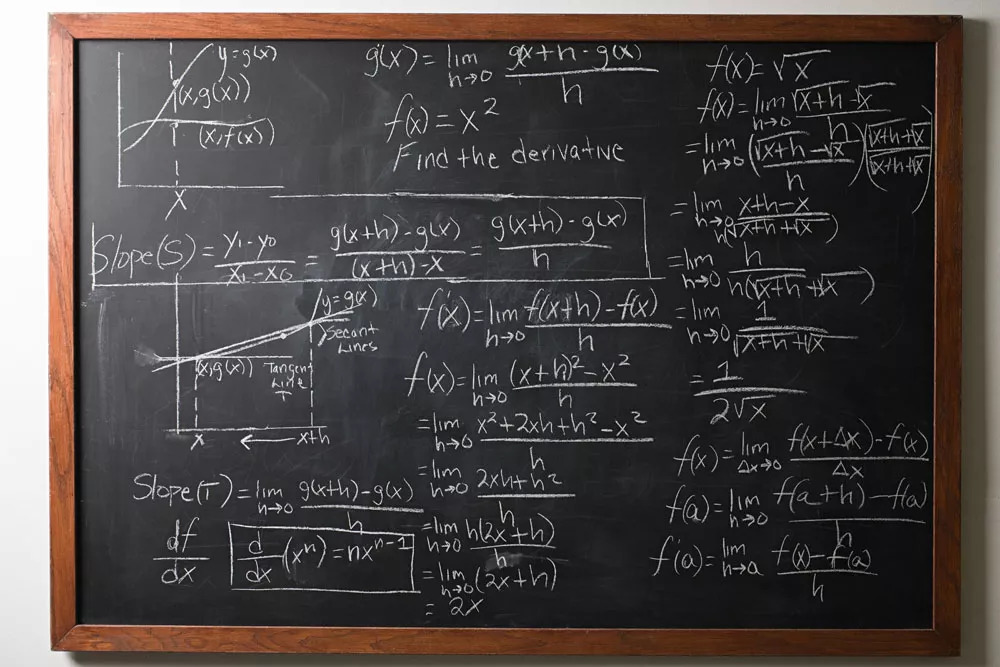 y=g(x)
(x,g(x))
(x,f(x))
x
g'(x) = lim h→0 g(x+h - g(x) / h
f(x) = x²
Find the derivative
Slope(S) = y₁-y₀ / x₁-x₀ = g(x+h)-g(x) / (x+h)-x = g(x+h)-g(x) / h
y=g(x)
Secant
Lines
(x,g(x))
Tangent
Line
T
x ← x+h
Slope(T) = lim h→0 g(x+h)-g(x) / h
df/dx
d/dx (xⁿ) = nxⁿ⁻¹
f'(x) = lim h→0 f(x+h)-f(x) / h
f(x) = lim h→0 (x+h)²-x² / h
= lim h→0 x²+2xh+h²-x² / h
= lim h→0 2xh+h² / h
= lim h→0 h(2x+h) / h
= lim h→0 (2x+h)
= 2x
f(x) = √x
f(x) = lim h→0 √x+h-√x / h
= lim h→0 (√x+h-√x / h)(√x+h+√x / √x+h+√x)
= lim h→0 x+h-x / h(√x+h+√x)
= lim h→0 h / h(√x+h+√x)
= lim h→0 1 / √x+h+√x
= 1 / 2√x
f(x) = lim Δx→0 f(x+Δx)-f(x) / Δx
f(a) = lim h→0 f(a+h)-f(a) / h
f'(a) = lim h→a f(x)-f(a) / h